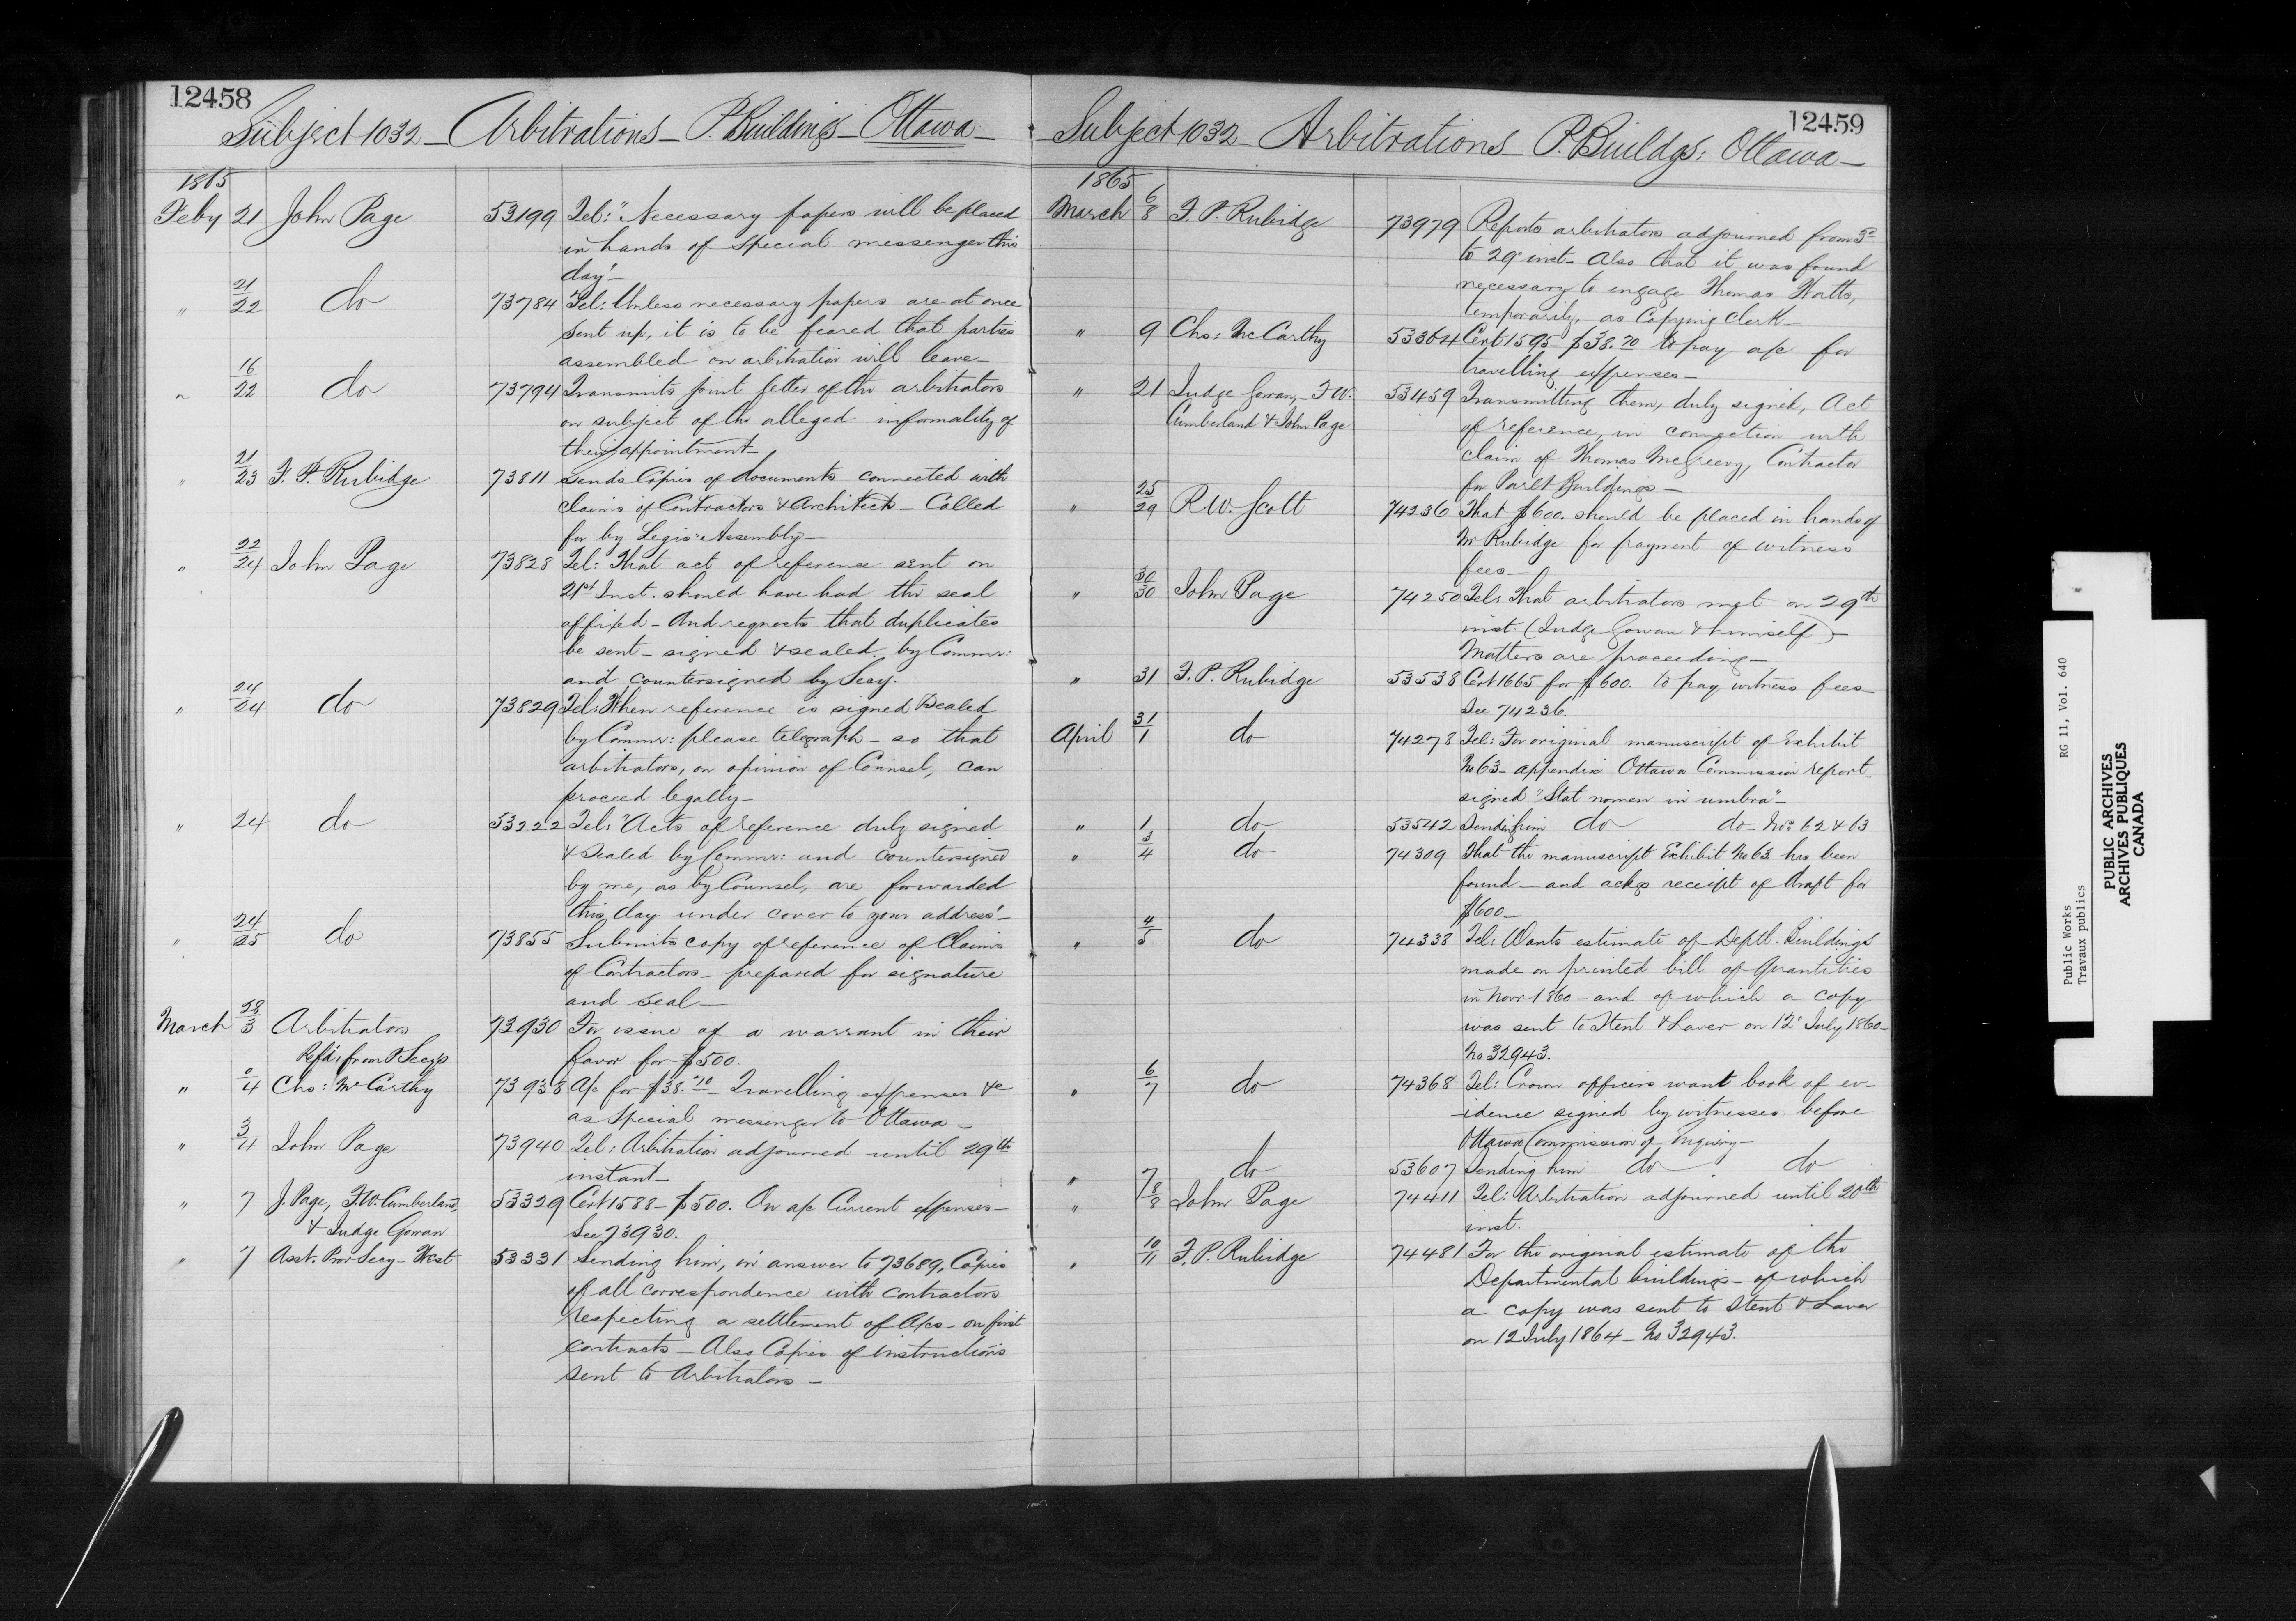 12458
Subject 1032 - Arbitrations - P. Buildings - Ottawa -
1865
Feby 21 John Page 53199 Tel: "Necessary papers will be placed
in hands of special messenger this
day" -
" 21/22 do 73784 Tel: Unless necessary papers are at once
sent up, it is to be feared that parties
assembled on arbitration will leave -
" 16/22 do 73794 Transmits joint letter of the arbitrators
on subject of the alleged informality of
their appointment -
" 21/23 F. P. Rubidge 73811 Sends Copies of documents connected with
claims of Contractors & Architects - Called
for by Legis: Assembly -
" 22/24 John Page 73828 Tel: That act of reference sent on
21st Inst. should have had the seal
affixed - And requests that duplicates
be sent - signed & sealed by Commr:
and countersigned by Secy.
" 24/24 do 73829 Tel: When reference is signed & sealed
by Commr: please telegraph - so that
arbitrators, on opinion of Counsel, can
proceed legally -
" 24 do 53222 Tel: "Acts of reference duly signed
& sealed by Commr: and countersigned
by me, as by Counsel, are forwarded
this day under cover to your address" -
" 24/25 do 73855 Submits copy of reference of Claims
of Contractors - prepared for signature
and seal -
March 28/3 Arbitrators 73930 For issue of a warrant in their
favor for $500.
Refd: from P Secys
" 0/4 Chs: McCarthy 73938 A/c for $38.70 - Travelling expenses &c
as special messenger to Ottawa -
" 3/4 John Page 73940 Tel: Arbitration adjourned until 29th
instant -
" 7 J. Page, F.W. Cumberland, 53329 Cert 1588 - $500. On a/c Current expenses -
& Judge Gowan See 73930.
" 7 Asst. Prov Secy - West 53331 Sending him, in answer to 73689, Copies
of all correspondence with contractors
respecting a settlement of A/cs - on first
contracts - Also Copies of instructions
sent to Arbitrators -
12459
Subject 1032 - Arbitrations - P. Buildgs: Ottawa -
1865
March 6/8 F. P. Rubidge 73979 Reports arbitrators adjourned from 3d
to 29 inst - Also that it was found
necessary to engage Thomas Watts,
temporarily, as Copying Clerk -
" 9 Chs: McCarthy 53364 Cert 1595 - $38.70 to pay a/c for
travelling expenses -
" 21 Judge Gowan, - F W. 53459 Transmitting them, duly signed, Act
Cumberland & John Page of reference, in connection with
claim of Thomas McGreevy, Contractor
for Parlt Buildings -
" 25/29 R W. Scott 74236 That $600. should be placed in hands of
Mr Rubidge for payment of witness
fees -
" 30/30 John Page 74250 Tel: That arbitrators met on 29th
inst. (Judge Gowan & himself) -
Matters are proceeding -
" 31 F. P. Rubidge 53538 Cert 1665 for $600. to pay witness fees -
See 74236.
April 31/1 do 74278 Tel: For original manuscript of Exhibit
No 63 - appendix Ottawa Commission report -
signed "Stat nomen in umbra" -
" 1 do 53542 Sending him do do Nos 62 & 63
" 3/4 do 74309 That the manuscript Exhibit No 63 has been
found - and ackgs receipt of draft for
$600 -
" 4/5 do 74338 Tel: Wants estimate of Deptl. Buildings
made on printed bill of Quantities
in Novr 1860 - and of which a copy
was sent to Stent & Laver on 12 July 1860 -
No 32943.
" 6/7 do 74368 Tel: Crown officers want book of ev-
idence signed by witnesses before
Ottawa Commission of Enquiry -
" 7 do 53607 Sending him do do
" 8/8 John Page 74411 Tel: Arbitration adjourned until 20th
inst.
" 10/11 F. P. Rubidge 74481 For the original estimate of the
Departmental buildings - of which
a copy was sent to Stent & Laver
on 12 July 1864 - No 32943.
Public Works RG 11, Vol. 640
Travaux publics
PUBLIC ARCHIVES
ARCHIVES PUBLIQUES
CANADA